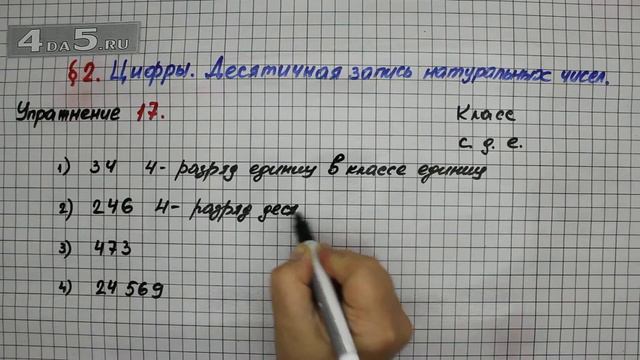 4DA5.RU
§2. Цифры. Десятичная запись натуральных чисел.
Упражнение 17.
Класс
с. д. е.
1) 34 4- разряд единиц в классе единиц
2) 246 4- разряд деся
3) 473
4) 24 569